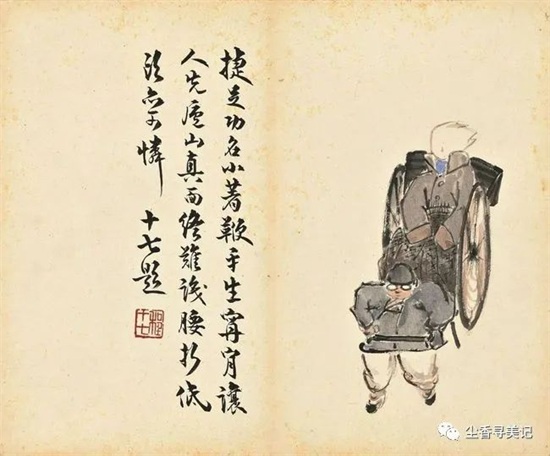 捷足功名小著鞭平生寧肯讓
人先廬山真面終難識腰折低
頭亦可憐 十七題
十七
尘香寻美记